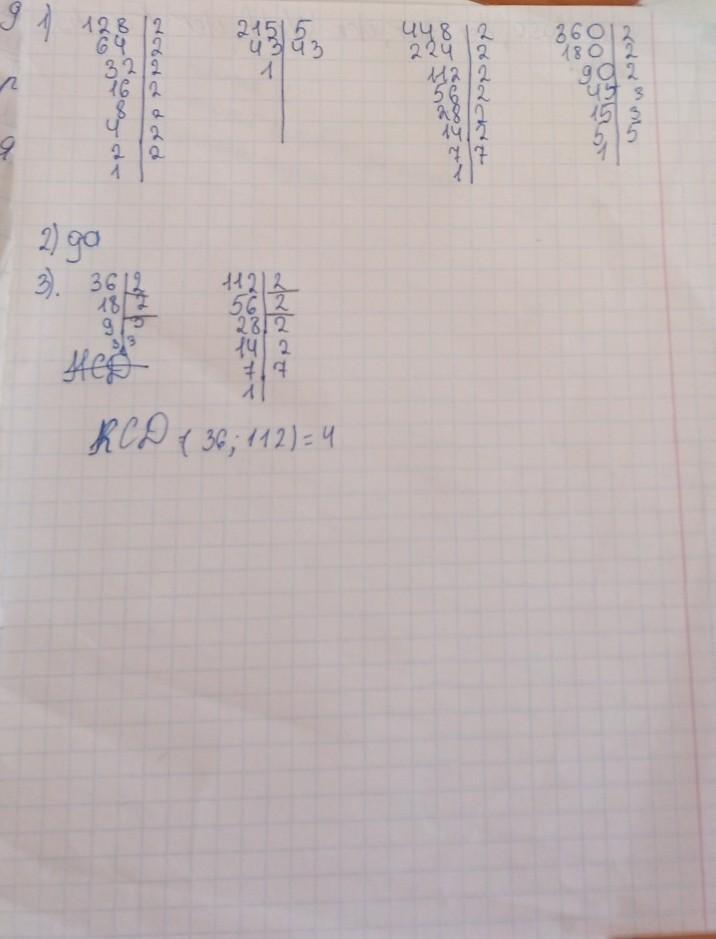 1) 128 | 2 215 | 5 448 | 2 360 | 2
64 | 2 43 | 43 224 | 2 180 | 2
32 | 2 1 | 112 | 2 90 | 2
16 | 2 56 | 2 45 | 3
8 | 2 28 | 2 15 | 3
4 | 2 14 | 2 5 | 5
2 | 2 7 | 7 1 |
1 | 1 |
2) да
3). 36 | 2 112 | 2
18 | 2 56 | 2
9 | 3 28 | 2
3 | 3 14 | 2
7 | 7
1 |
(36; 112) = 4